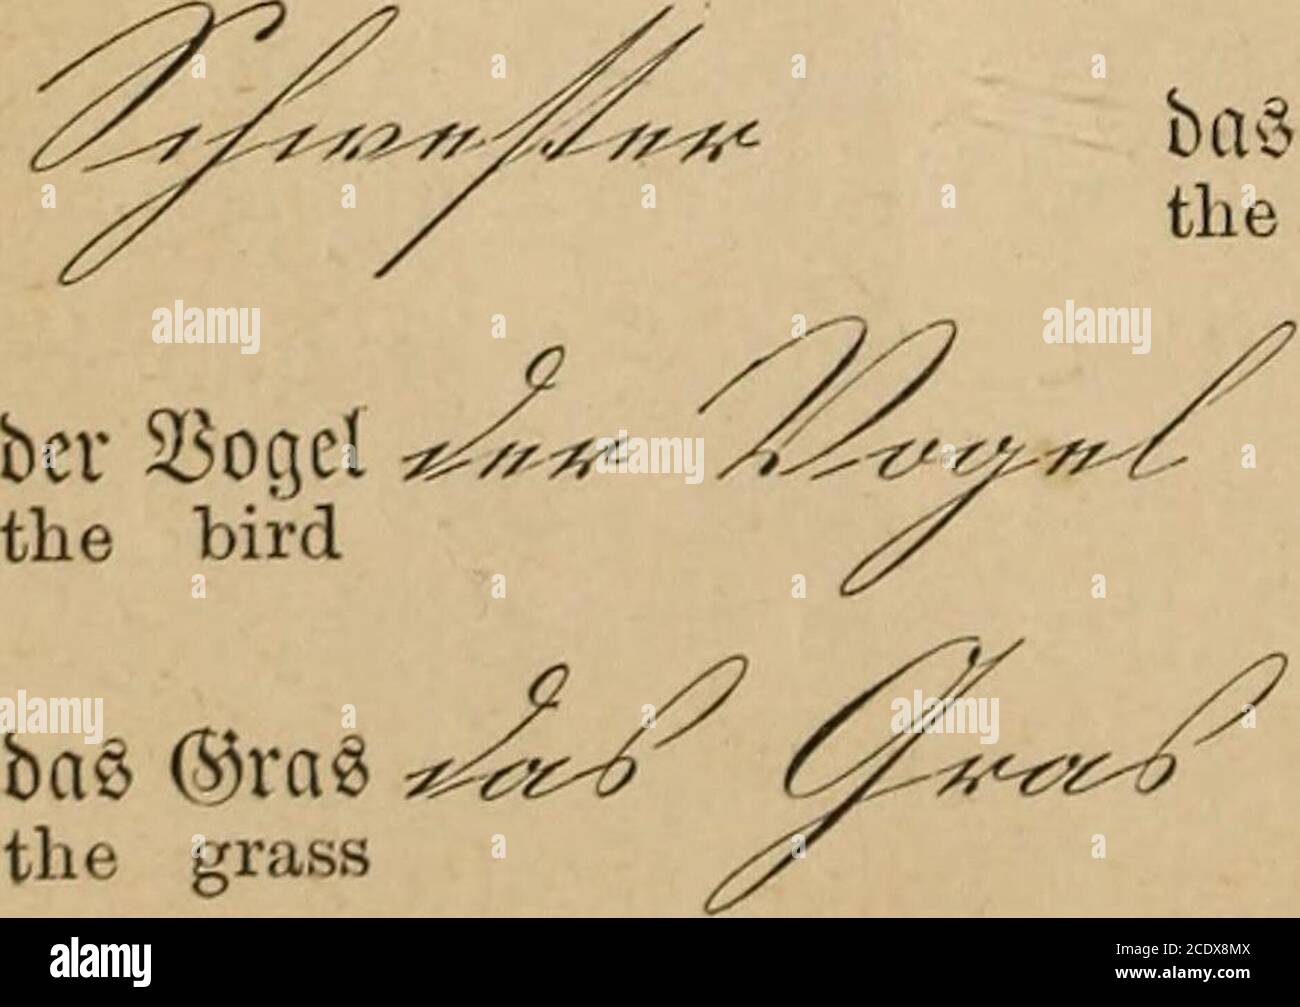 Schwester das
the
der Vogel der Vogel
the bird
das Gras das Gras
the grass
alamy
Image ID: 2CDX8MX
www.alamy.com